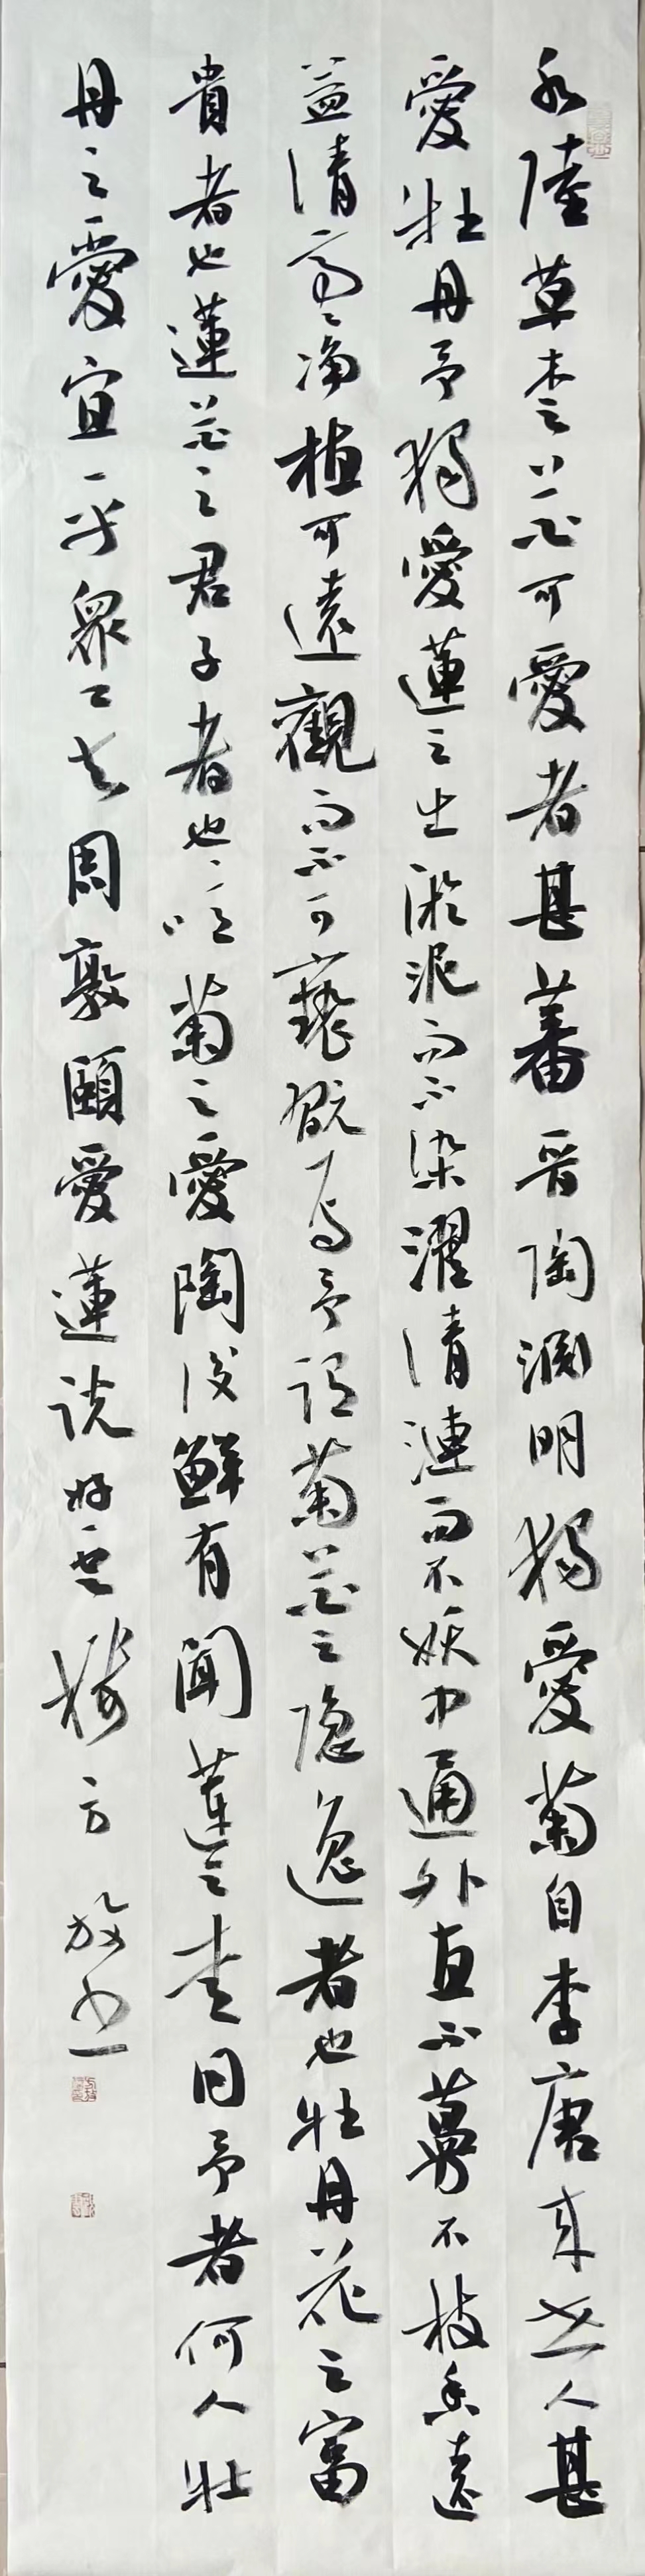 水陸草木之花可愛者甚蕃晋陶淵明獨愛菊自李唐来世人甚
愛牡丹予獨愛蓮之出淤泥而不染濯清漣而不妖中通外直不蔓不枝香遠
益清亭亭净植可遠觀而不可褻翫焉予謂菊花之隐逸者也牡丹花之富
貴者也蓮花之君子者也噫菊之愛陶後鮮有聞蓮之愛同予者何人牡
丹之愛宜乎衆矣周敦頤愛蓮説 方 書